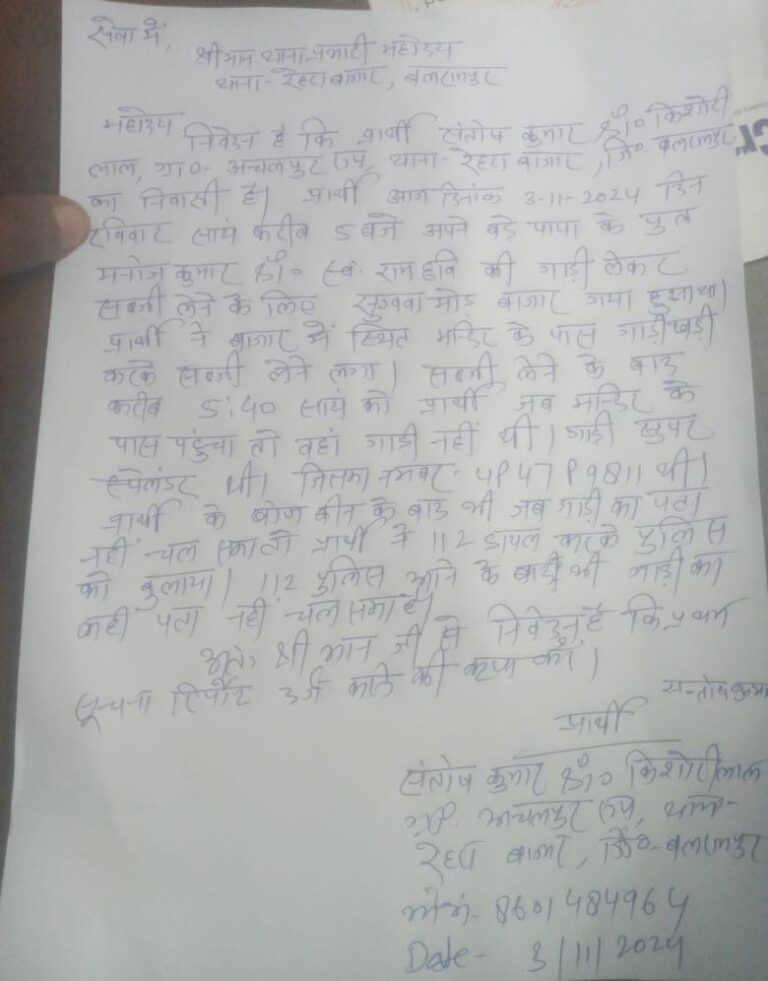 सेवा में,
श्रीमान थाना प्रभारी महोदय
थाना- रेहरा बाजार, बलरामपुर
महोदय
निवेदन है कि प्रार्थी संतोष कुमार S/o किशोरी
लाल, ग्रा०- अचलपुर रूप, थाना- रेहरा बाजार, जि० बलरामपुर
का निवासी है। प्रार्थी आज दिनांक 3-11-2024 दिन
रविवार सायं करीब 5 बजे अपने बड़े पापा के पुत्र
मनोज कुमार S/o स्व. राम छवि की गाड़ी लेकर
सब्जी लेने के लिए मोड़ बाजार गया हुआ था।
प्रार्थी ने बाजार में स्थित मन्दिर के पास गाड़ी खड़ी
करके सब्जी लेने लगा। सब्जी लेने के बाद
करीब 5:40 सायं को प्रार्थी जब मन्दिर के
पास पहुंचा तो वहां गाड़ी नहीं थी। गाड़ी सुपर
स्पेलंडर थी। जिसका नम्बर- UP 47 P 9811 थी।
प्रार्थी के खोज बीन के बाद भी जब गाड़ी का पता
नहीं चल सका तो प्रार्थी ने 112 डायल करके पुलिस
को बुलाया। 112 पुलिस आने के बाद भी गाड़ी का
कहीं पता नहीं चल सका है।
अतः श्री मान जी से निवेदन है कि प्रथम
सूचना रिर्पोट दर्ज करने की कृपा करें।
सन्तोष कुमार
प्रार्थी
संतोष कुमार S/o किशोरी लाल
ग्रा०. अचलपुर रूप, थाना-
रेहरा बाजार, जि०- बलरामपुर
मो०नं. 8601484964
Date- 3/11/2024